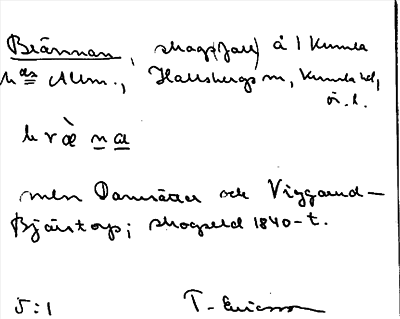 Brännan, skogs(fall) å 1 Kumla
k:as Allm., Hallsbergs sn, Kumla hd,
ör. l.
bræ̀ na
mln Damsätter och Viggarud-
Bjärstorp; skogseld 1840-t.
5:1 T. Ericsson